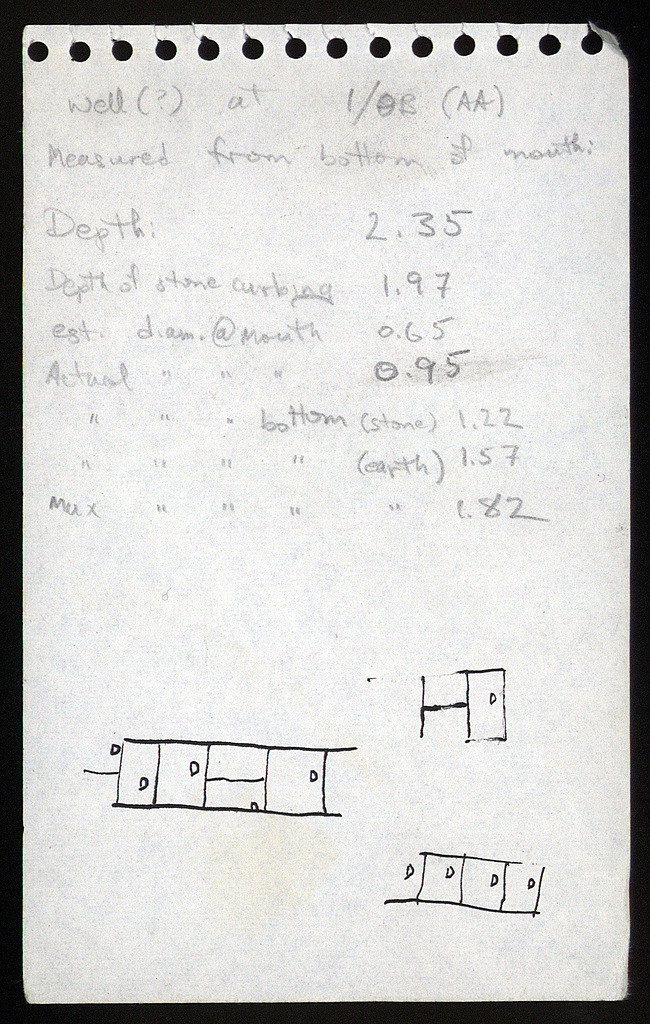 well (?) at 1/ΘB (AA)
Measured from bottom of mouth:
Depth: 2.35
Depth of stone curbing 1.97
est. diam. @ mouth 0.65
Actual " " " 0.95
" " " bottom (stone) 1.22
" " " " (earth) 1.57
Max " " " " 1.82
D
D
D D D D
D
D D D D